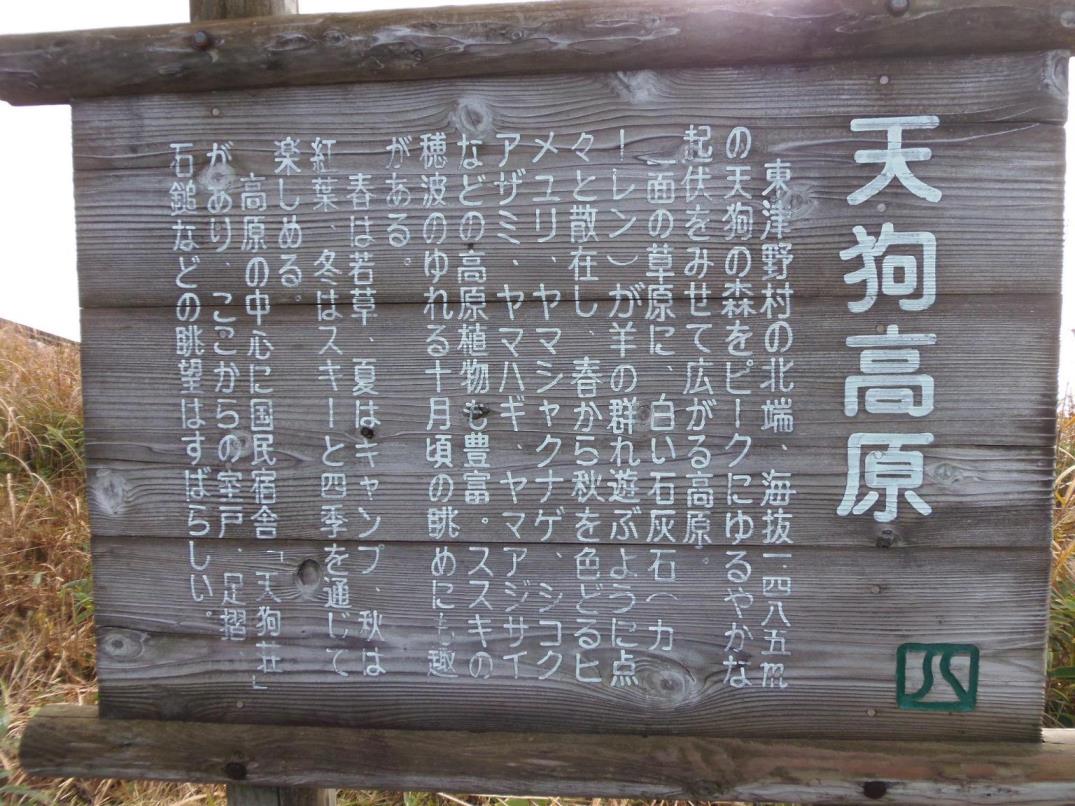 天狗高原
東津野村の北端、海抜一、四八五m
の天狗の森をピークにゆるやかな
起伏をみせて広がる高原。
一面の草原に、白い石灰石(カ
ーレン)が羊の群れ遊ぶように点
々と散在し、春から秋を色どるヒ
メユリ、ヤマシャクナゲ、シコク
アザミ、ヤマハギ、ヤマアジサイ
などの高原植物も豊富。ススキの
穂波のゆれる十月頃の眺めにも趣
がある。
春は若草、夏はキャンプ、秋は
紅葉、冬はスキーと四季を通じて
楽しめる。
高原の中心に国民宿舎「天狗荘」
があり、ここからの室戸、足摺、
石鎚などの眺望はすばらしい。